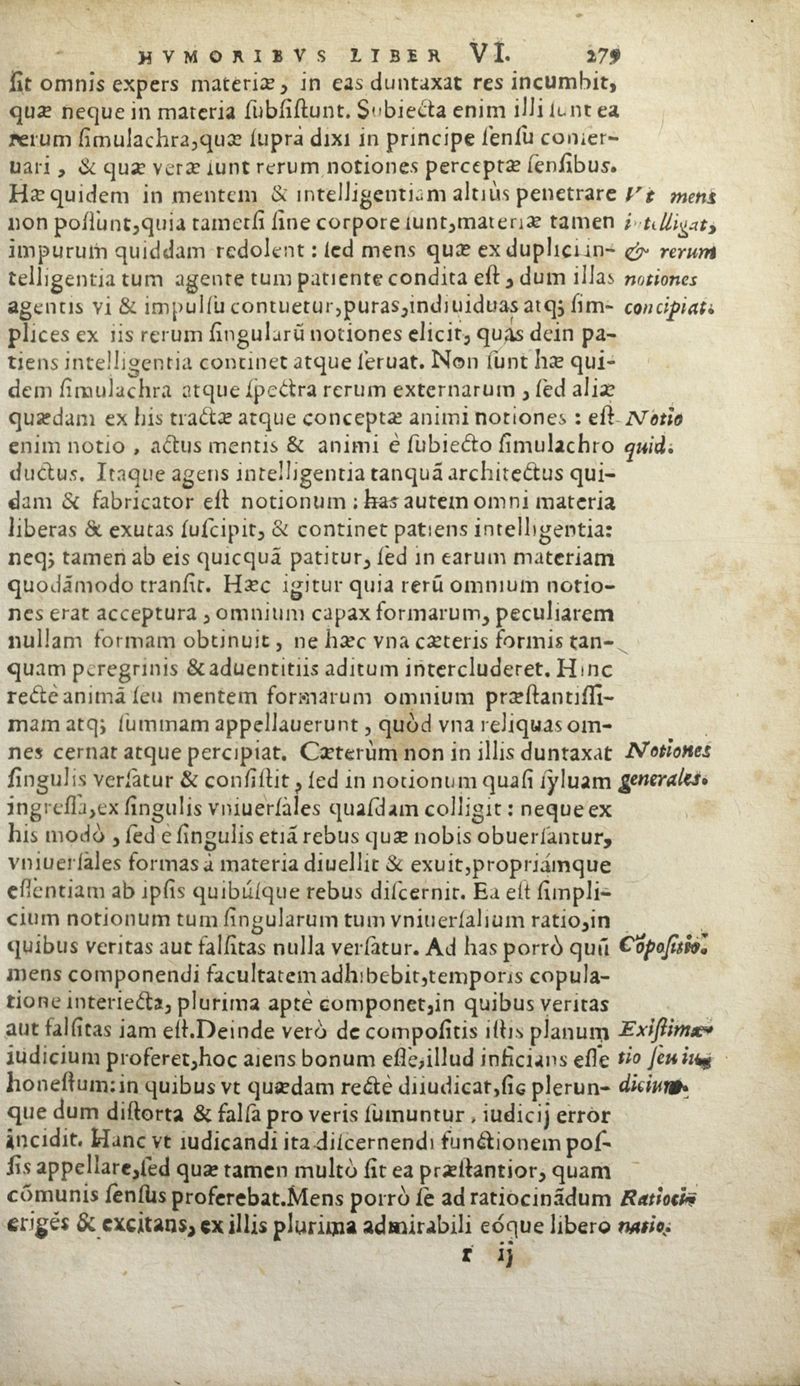 HVMORIBVS LIBER VI. 279
ſit omnis expers materiæ, in eas duntaxat res incumbit,
quæ neque in materia ſubſiſtunt. Subiecta enim illi ſunt ea
rerum ſimulachra,quæ ſupra dixi in principe ſenſu conſer-
uari, & quæ veræ ſunt rerum notiones perceptæ ſenſibus.
Hæ quidem in mentem & intelligentiam altiùs penetrare Vt mens
non poſſunt,quia tametſi ſine corpore ſunt,materiæ tamen intelligat,
impurum quiddam redolent: ſed mens quæ ex duplici in- & rerum
telligentia tum agente tum patiente condita eſt, dum illas notiones
agentis vi & impulſu contuetur,puras,indiuiduas atq; ſim- concipiat.
plices ex iis rerum ſingularū notiones elicit, quas dein pa-
tiens intelligentia continet atque ſeruat. Non ſunt hæ qui-
dem ſimulachra atque ſpectra rerum externarum, ſed aliæ
quædam ex his tractæ atque conceptæ animi notiones: eſt Notio
enim notio, actus mentis & animi è ſubiecto ſimulachro quid.
ductus. Itaque agens intelligentia tanquā architectus qui-
dam & fabricator eſt notionum: has autem omni materia
liberas & exutas ſuſcipit, & continet patiens intelligentia:
neq; tamen ab eis quicquā patitur, ſed in earum materiam
quodāmodo tranſit. Hæc igitur quia rerū omnium notio-
nes erat acceptura, omnium capax formarum, peculiarem
nullam formam obtinuit, ne hæc vna cæteris formis tan-
quam peregrinis & aduentitiis aditum intercluderet. Hinc
rectè animā ſeu mentem formarum omnium præſtantiſſi-
mam atq; ſummam appellauerunt, quòd vna reliquas om-
nes cernat atque percipiat. Cæterùm non in illis duntaxat Notiones
ſingulis verſatur & conſiſtit, ſed in notionum quaſi ſyluam generales.
ingreſſa,ex ſingulis vniuerſales quaſdam colligit: neque ex
his modò, ſed e ſingulis etiā rebus quæ nobis obuerſantur,
vniuerſales formas à materia diuellit & exuit,propriámque
eſſentiam ab ipſis quibúſque rebus diſcernit. Ea eſt ſimpli-
cium notionum tum ſingularum tum vniuerſalium ratio,in
quibus veritas aut falſitas nulla verſatur. Ad has porrò quū Cōpoſitio.
mens componendi facultatem adhibebit,temporis copula-
tione interiecta, plurima aptè componet,in quibus veritas
aut falſitas iam eſt.Deinde verò de compoſitis iſtis planum Exiſtima-
iudicium proferet,hoc aiens bonum eſſe,illud inficians eſſe tio ſeu iu-
honeſtum:in quibus vt quædam rectè diiudicat,ſic plerun- dicium.
que dum diſtorta & falſa pro veris ſumuntur, iudicij error
incidit. Hanc vt iudicandi ita diſcernendi functionem poſ-
ſis appellare,ſed quæ tamen multò ſit ea præſtantior, quam
cōmunis ſenſus proferebat.Mens porrò ſe ad ratiocinādum Ratioci-
erigēs & excitans, ex illis plurima admirabili eóque libero natio.
r ij